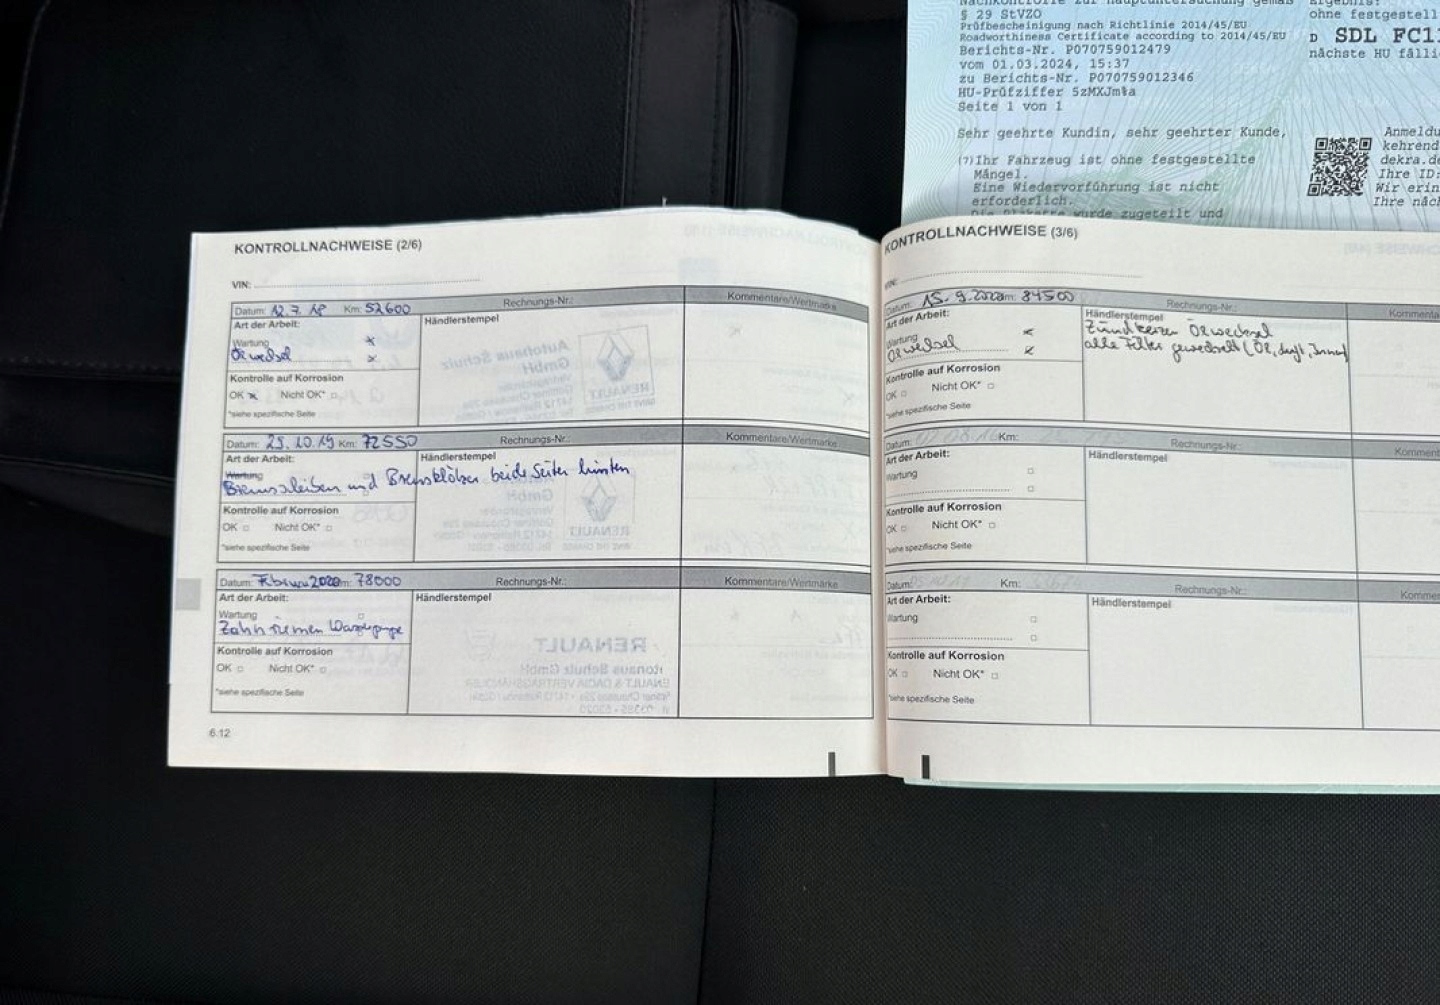 Nachkontrolle zur Hauptuntersuchung gemäß
§ 29 StVZO
Prüfbescheinigung nach Richtlinie 2014/45/EU
Roadworthiness Certificate according to 2014/45/EU
Berichts-Nr. P070759012479
vom 01.03.2024, 15:37
zu Berichts-Nr. P070759012346
HU-Prüfziffer 5zMXJm
Seite 1 von 1
Ergebnis:
ohne festgestell
D SDL FC11
nächste HU fälli
Sehr geehrte Kundin, sehr geehrter Kunde,
(7)Ihr Fahrzeug ist ohne festgestellte
Mängel.
Eine Wiedervorführung ist nicht
erforderlich.
Die Plakette wurde zugeteilt und
Anmeldu
kehrend
dekra.de
Ihre ID:
Wir erin
Ihre näc
KONTROLLNACHWEISE (2/6)
VIN:
Datum: 12.7.18 Km: 52600 Rechnungs-Nr.: Kommentare/Wertmarke
Art der Arbeit: Händlerstempel
Wartung
Ölwechsel
Kontrolle auf Korrosion
OK Nicht OK*
*siehe spezifische Seite
Datum: 25.10.19 Km: 72550 Rechnungs-Nr.: Kommentare/Wertmarke
Art der Arbeit: Händlerstempel
Wartung
Bremsscheiben und Bremsklötze beide Seiten hinten
Kontrolle auf Korrosion
OK Nicht OK*
*siehe spezifische Seite
Datum: Februar 2020 Km: 78000 Rechnungs-Nr.: Kommentare/Wertmarke
Art der Arbeit: Händlerstempel
Wartung
Zahnriemen Wasserpumpe
Kontrolle auf Korrosion
OK Nicht OK*
*siehe spezifische Seite
6.12
KONTROLLNACHWEISE (3/6)
VIN:
Datum: 15.9.2020 Km: 84500 Rechnungs-Nr.: Kommenta
Art der Arbeit: Händlerstempel
Wartung Zündkerzen Ölwechsel
Ölwechsel alle Filter gewechselt (Öl, Luft, Innen)
Kontrolle auf Korrosion
OK Nicht OK*
*siehe spezifische Seite
Datum: Km: Rechnungs-Nr.: Komment
Art der Arbeit: Händlerstempel
Wartung
Kontrolle auf Korrosion
OK Nicht OK*
*siehe spezifische Seite
Datum: Km: Rechnungs-Nr.: Kommen
Art der Arbeit: Händlerstempel
Wartung
Kontrolle auf Korrosion
OK Nicht OK*
*siehe spezifische Seite